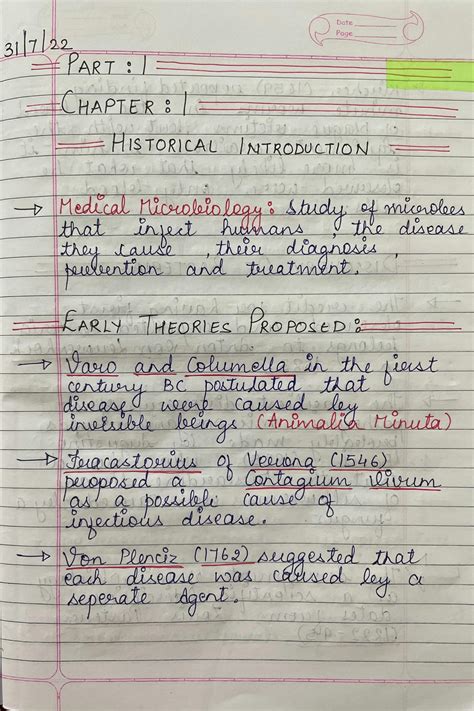 Date
Page
31/7/22
PART : 1
CHAPTER : 1
HISTORICAL INTRODUCTION
→ Medical Microbiology : Study of microbes
that infect humans, the disease
they cause, their diagnosis,
prevention and treatment.
EARLY THEORIES PROPOSED :
→ Varo and Columella in the first
century BC postulated that
disease were caused by
invisible beings (Animalia Minuta)
→ Fracastorius of Verona (1546)
proposed a Contagium vivum
as a possible cause of
infectious disease.
→ Von Plenciz (1762) suggested that
each disease was caused by a
seperate Agent.